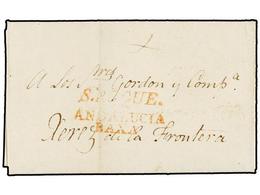 A los Sres. Gordon y Compª.
S. ROQUE.
ANDALUCIA
BAXA
Xerez de la Frontera